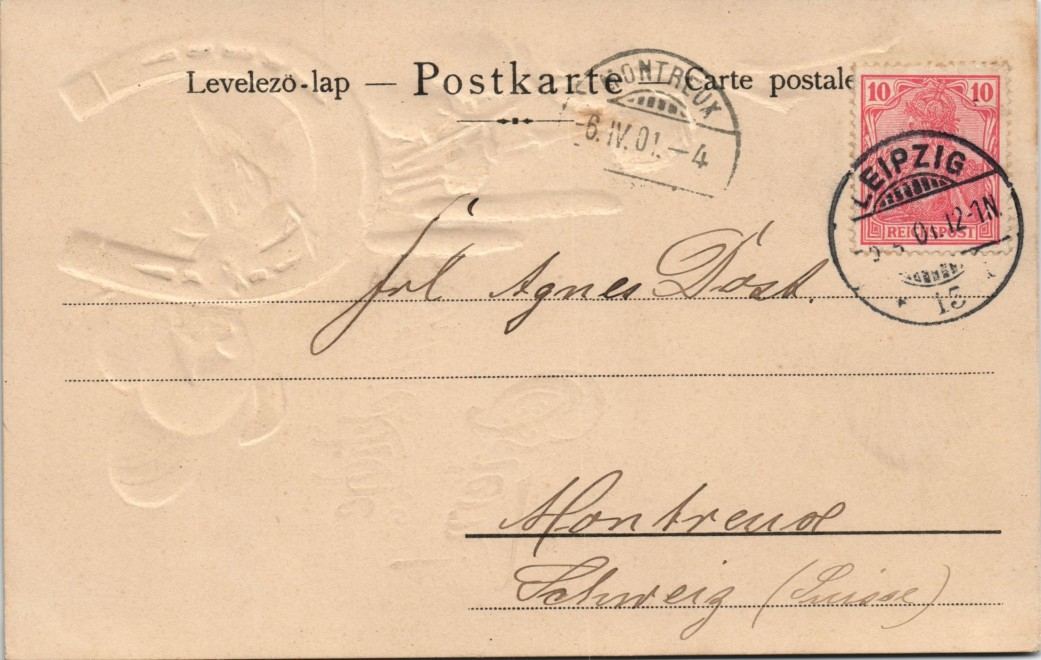 Levelező-lap — Postkarte Carte postale
MONTREUX
6.IV.01.—4
10 10
REICHSPOST
LEIPZIG
01.12-1N
15
Frl Agnes Dost.
Montreux
Schweiz (Suisse)